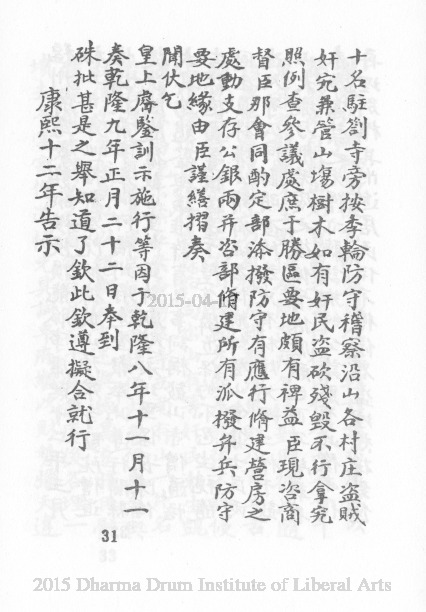 十名駐劄寺旁按季輪防守稽察沿山各村庄盗賊
奸宄兼管山塲樹木如有奸民盗砍殘毀不行拿究
照例查參議處庶于勝區要地頗有裨益臣現咨商
督臣那會同酌定部添撥防守有應行脩建營房之
處動支存公銀兩并咨部脩建所有派撥弁兵防守
要地緣由臣謹繕摺奏
聞伏乞
皇上睿鑒訓示施行等因于乾隆八年十一月十一
奏乾隆九年正月二十二日奉到
硃批甚是之舉知道了欽此欽遵擬合就行
康熙十二年告示
31
2015-04-
2015 Dharma Drum Institute of Liberal Arts